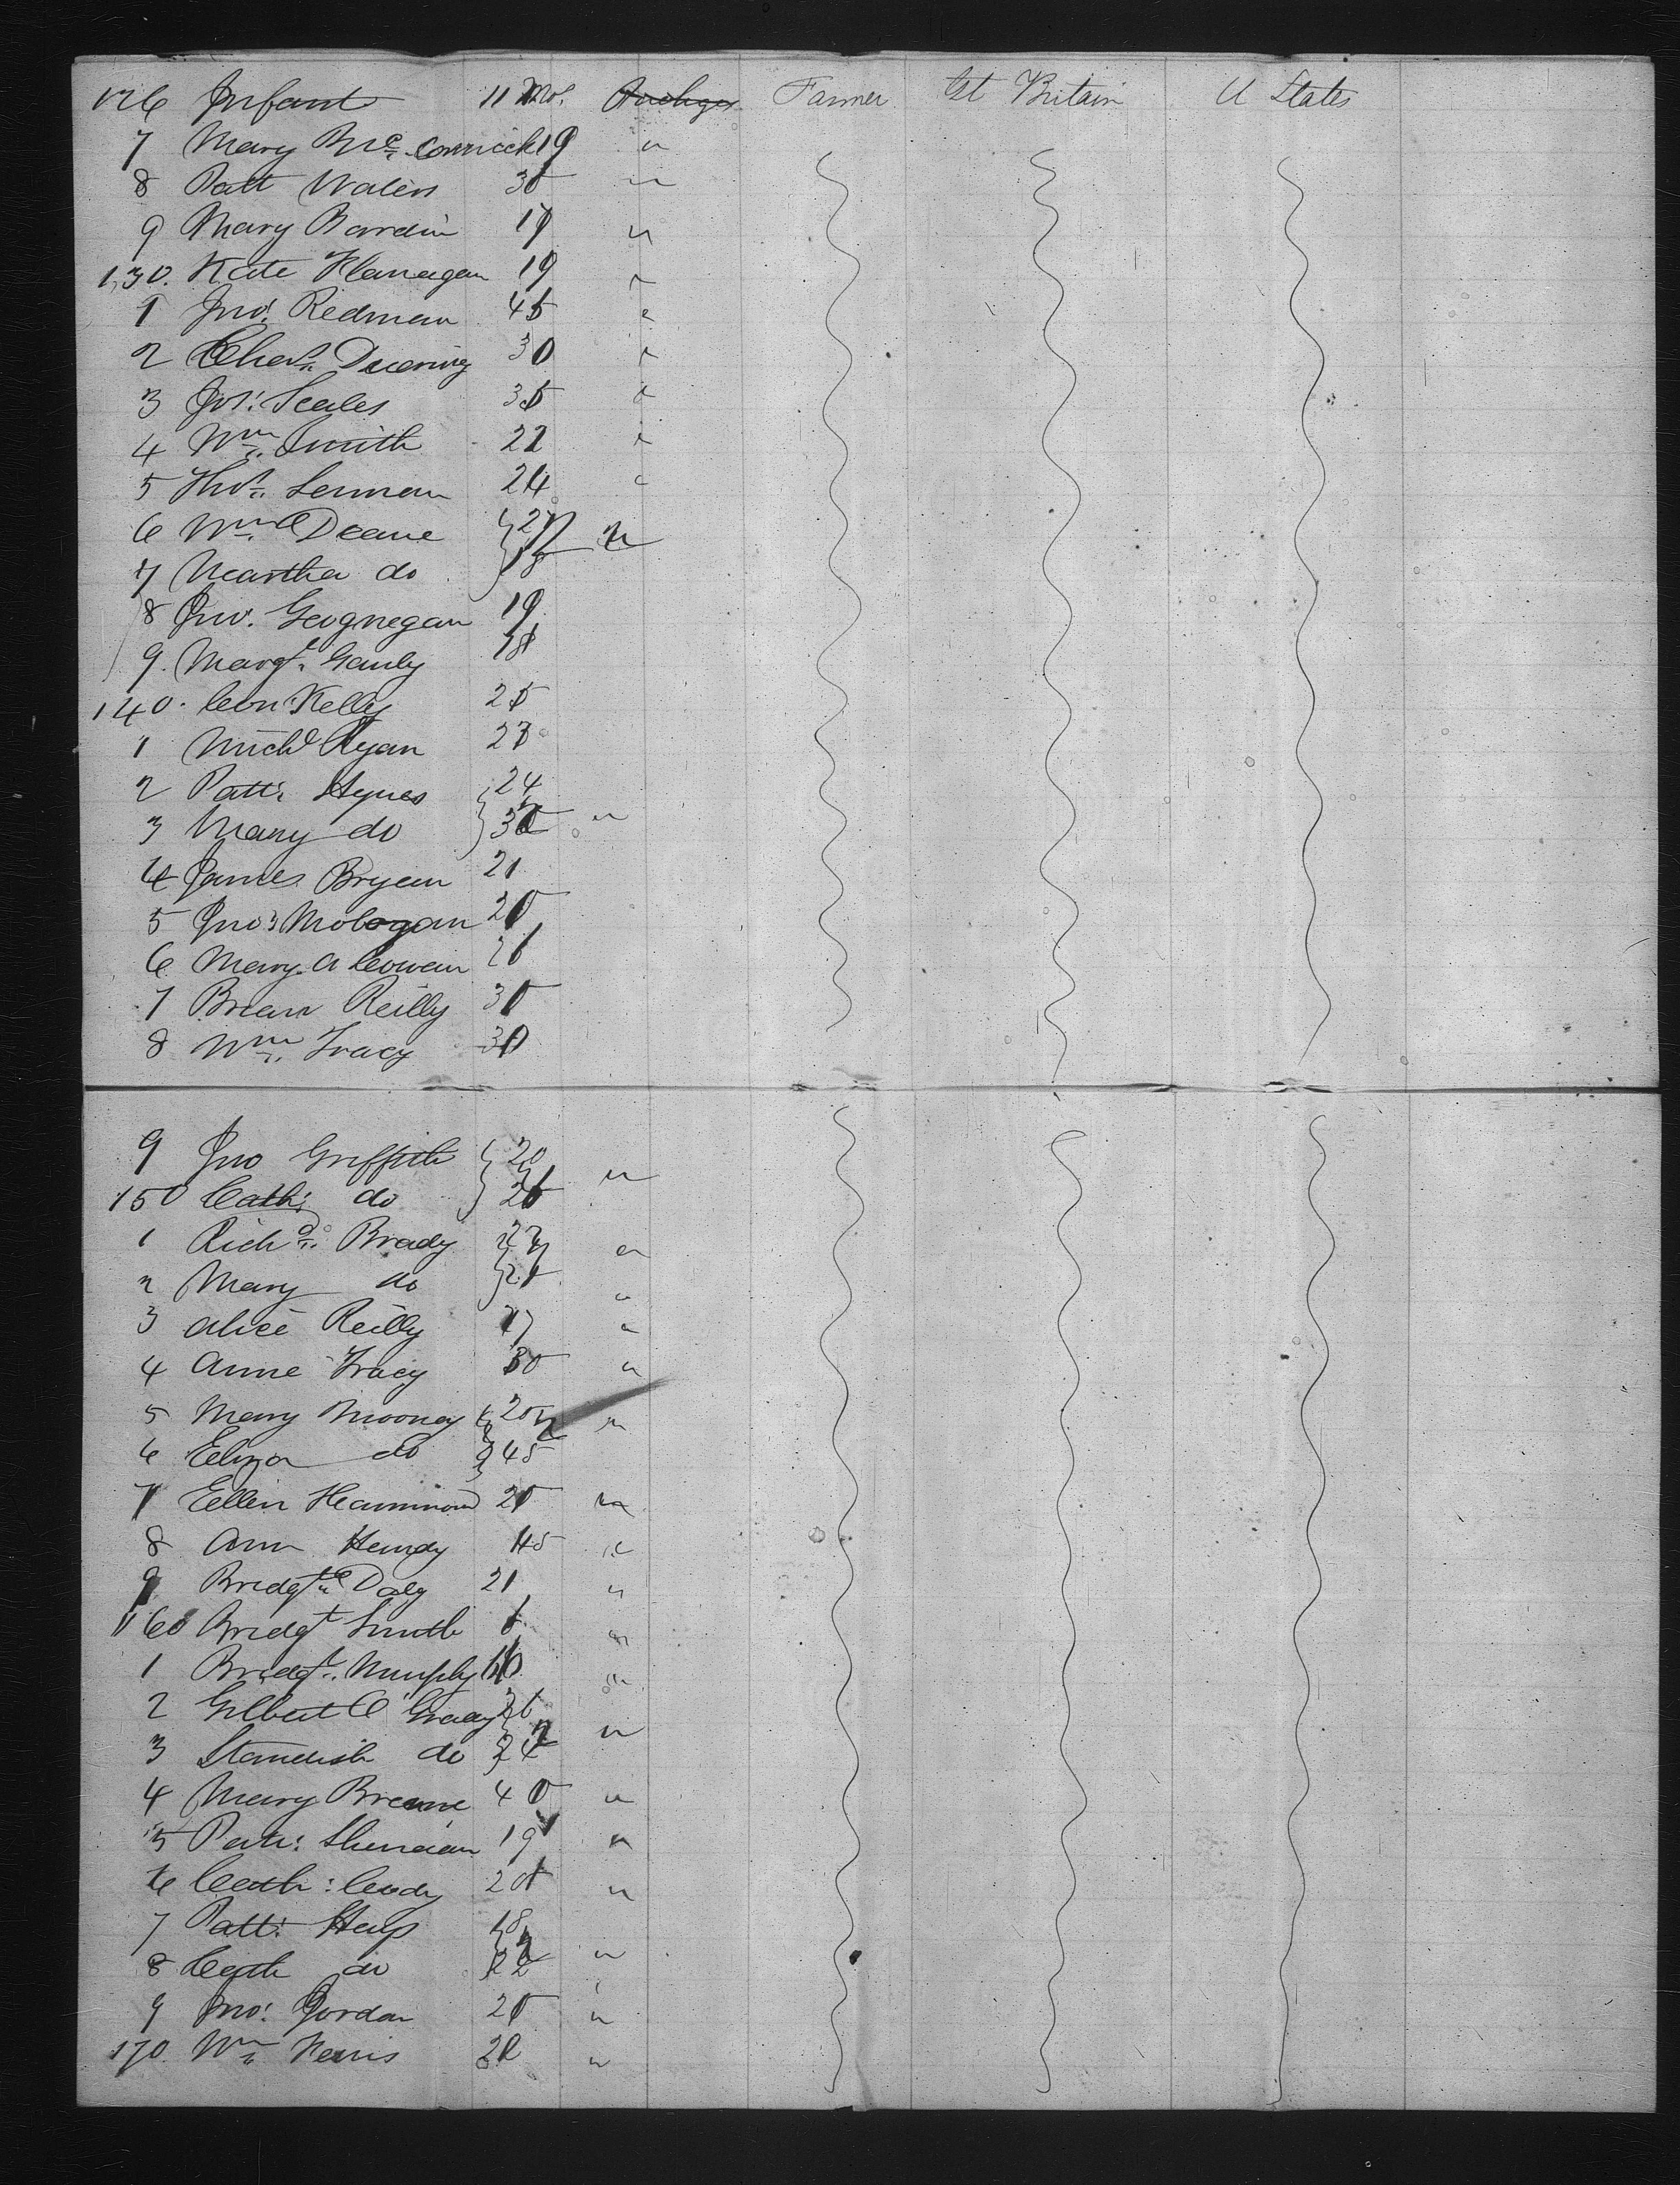 126 Infant 11 Mos. Farmer Gt Britain U States
7 Mary Mc. Cormick 19 "
8 Patt Walen 30 "
9 Mary 17 "
130. Kate Flanagan 19 "
1 Jno. Redman 45 "
2 Chas. Deering 30 "
3 Jos. Scales 35 "
4 Wm. Smith 22 "
5 Thos. Lennan 24 "
6 Wm. Deane 27 "
7 Martha do
8 Jno. Geognegan 19
9. Margt. Gauly 18
140. Con Kelly 25
1 Michl Ryan 23
2 Patt. Hynes 24
3 Mary do 30 "
4 James Bryan 21
5 Jno. Mologan 20
6 Mary A Cowan 26
7 Brian Reilly 30
8 Wm. Tracy 30
9 Jno Griffith 20 "
150 Cath: do 26
1 Richd. Brady 22 "
2 Mary do 20 "
3 Alice Reilly 17 "
4 Anne Tracy 30 "
5 Mary Mooney 20 "
6 Eliza do 45
7 Ellen Hammond 20 "
8 Ann Hendy 45 "
9 Bridgt. Daly 21 "
160 Bridgt Smith "
1 Bridgt. Murphy "
2 Gilbert O Grady 26 "
3 Standish do 24
4 Mary 40 "
5 Patt: Sheridan 19 "
6 Cath: Cody 20 "
7 Patt: 18
8 Cath do 22 "
9 Jno. Jordan 20 "
170. Wm 22 "